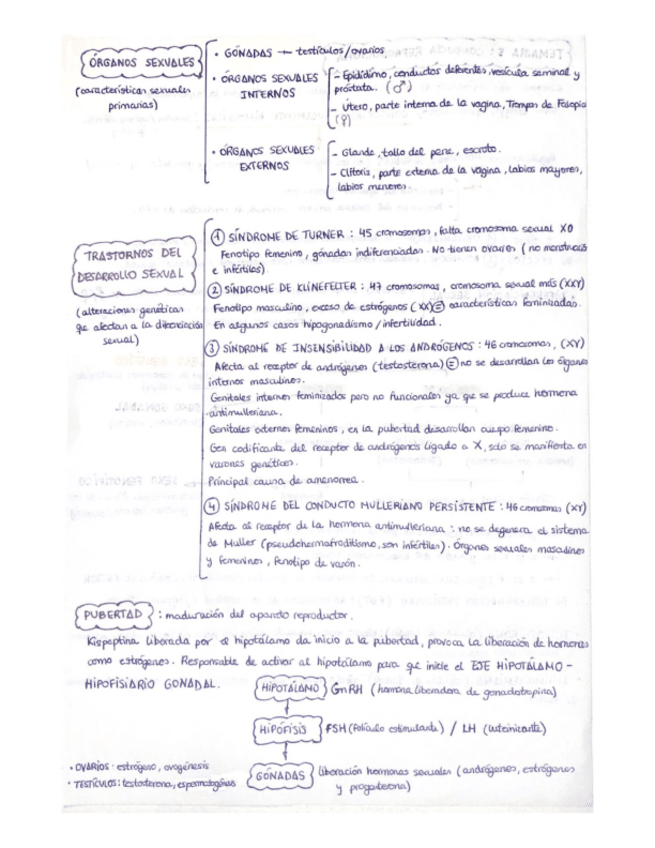 ÓRGANOS SEXUALES
(características sexuales
primarias)
• GÓNADAS → testículos/ovarios
• ÓRGANOS SEXUALES
INTERNOS
- Epidídimo, conductos deferentes, vesícula seminal y
próstata. (♂)
- Útero, parte interna de la vagina, Trompas de Falopio
(♀)
• ÓRGANOS SEXUALES
EXTERNOS
- Glande, tallo del pene, escroto.
- Clítoris, parte externa de la vagina, labios mayores,
labios menores.
TRASTORNOS DEL
DESARROLLO SEXUAL
(alteraciones genéticas
que afectan a la diferenciación
sexual)
① SÍNDROME DE TURNER: 45 cromosomas, falta cromosoma sexual X0
Fenotipo femenino, gónadas indiferenciadas. No tienen ovarios (no menstruación
e infértiles).
② SÍNDROME DE KLINEFELTER: 47 cromosomas, cromosoma sexual más (XXY)
Fenotipo masculino, exceso de estrógenos (XX) = características feminizadas.
En algunos casos hipogonadismo/infertividad.
③ SÍNDROME DE INSENSIBILIDAD A LOS ANDRÓGENOS: 46 cromosomas, (XY)
Afecta al receptor de andrógenos (testosterona) = no se desarrollan los órganos
internos masculinos.
Genitales internos feminizados pero no funcionales ya que se produce hormona
antimulleriana.
Genitales externos femeninos, en la pubertad desarrollan cuerpo femenino.
Gen codificante del receptor de andrógenos ligado a X, solo se manifiesta en
varones genéticos.
Principal causa de amenorrea.
④ SÍNDROME DEL CONDUCTO MULLERIANO PERSISTENTE: 46 cromosomas (XY)
Afecta al receptor de la hormona antimulleriana: no se degenera el sistema
de Muller (pseudohermafroditismo, son infértiles). Órganos sexuales masculinos
y femeninos, fenotipo de varón.
PUBERTAD: maduración del aparato reproductor.
Kispeptina liberada por el hipotálamo da inicio a la pubertad, provoca la liberación de hormonas
como estrógenos. Responsable de activar al hipotálamo para que inicie el EJE HIPOTÁLAMO-
HIPOFISIARIO GONADAL.
HIPOTÁLAMO GnRH (hormona liberadora de gonadotropina)
HIPÓFISIS FSH (folículo estimulante) / LH (luteinizante)
GÓNADAS liberación hormonas sexuales (andrógenos, estrógenos
y progesterona)
• OVARIOS: estrógeno, ovogénesis
• TESTÍCULOS: testosterona, espermatogénesis